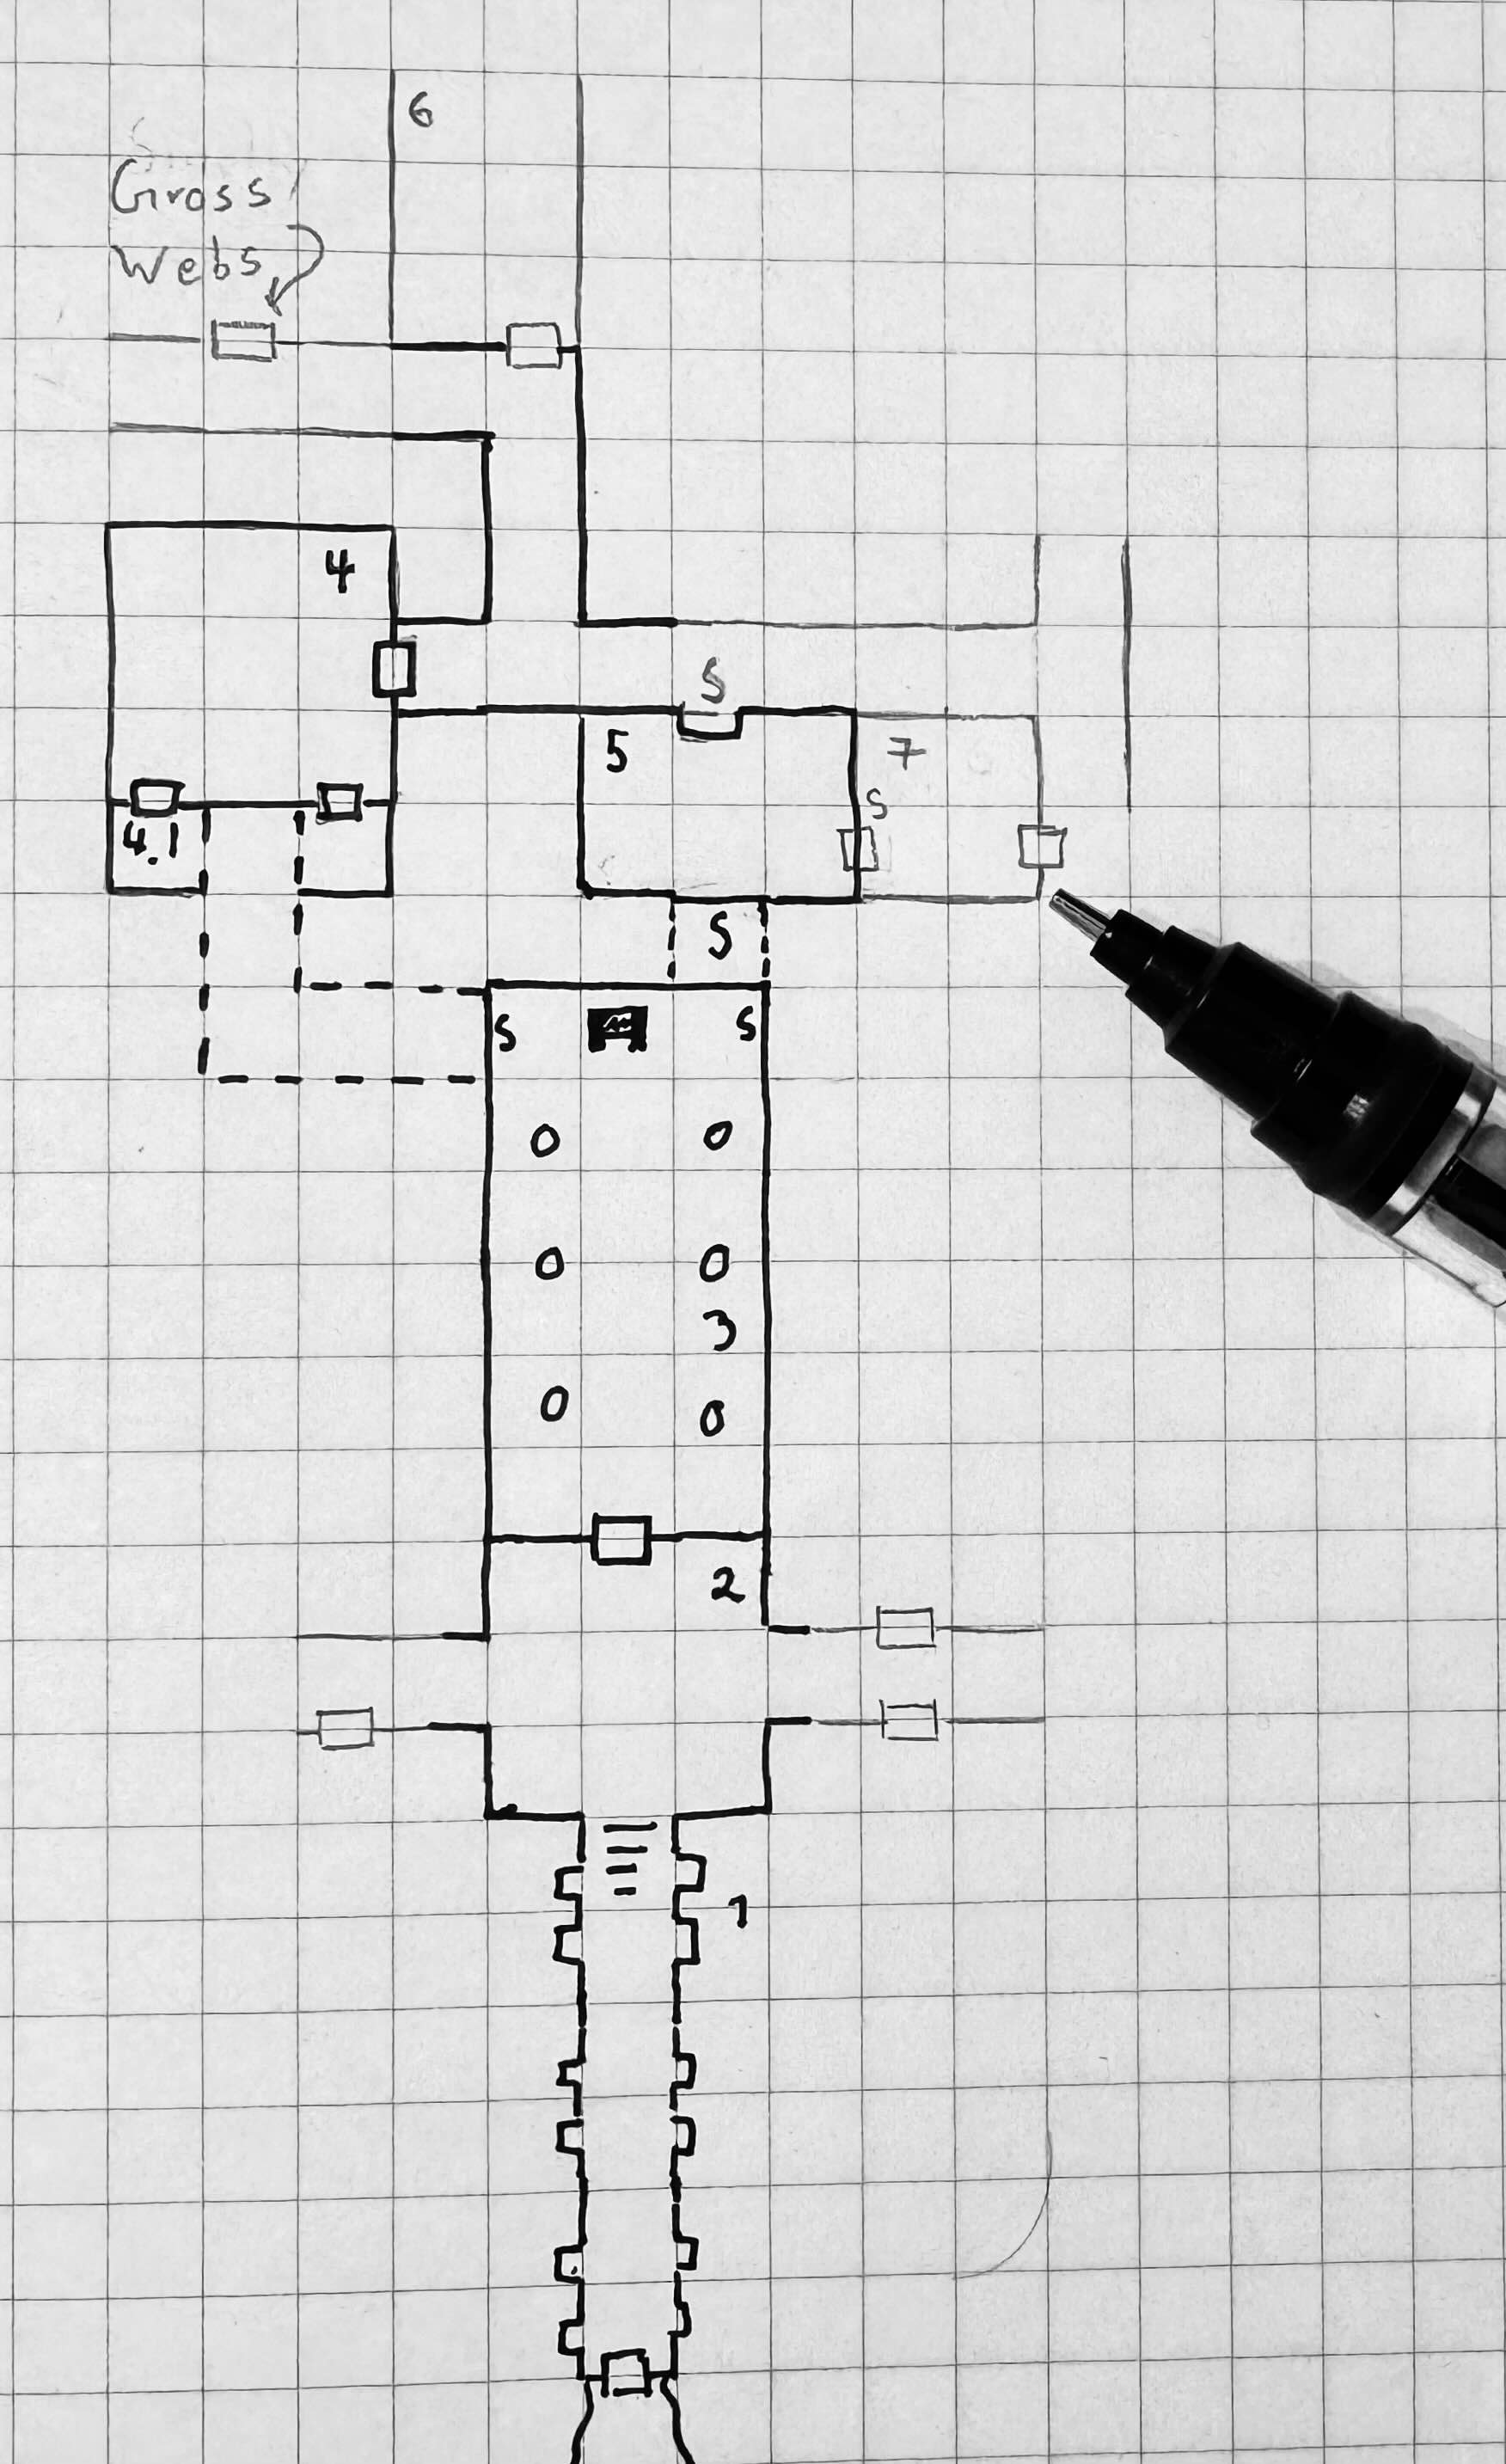 6
Gross
Webs
4
S
5
7
S
4.1
S
S
S
3
2
1